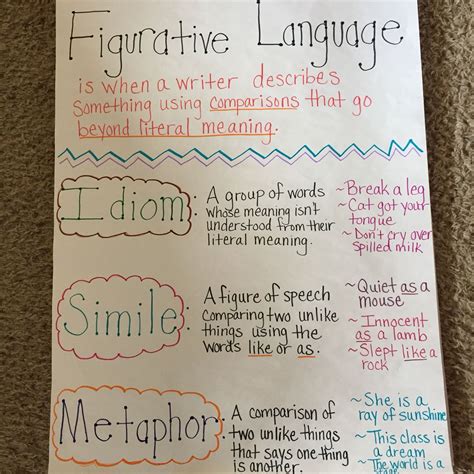 Figurative Language
is when a writer describes
something using comparisons that go
beyond literal meaning.
Idiom: A group of words
whose meaning isn't
understood from their
literal meaning.
~Break a leg
~Cat got your
tongue
~Don't cry over
spilled milk
Simile: A figure of speech
comparing two unlike
things using the
words like or as.
~Quiet as a
mouse
~Innocent
as a lamb
~Slept like a
rock
Metaphor: A comparison of
two unlike things
that says one thing
is another.
~She is a
ray of sunshine
~This class is
a dream
~The world is a